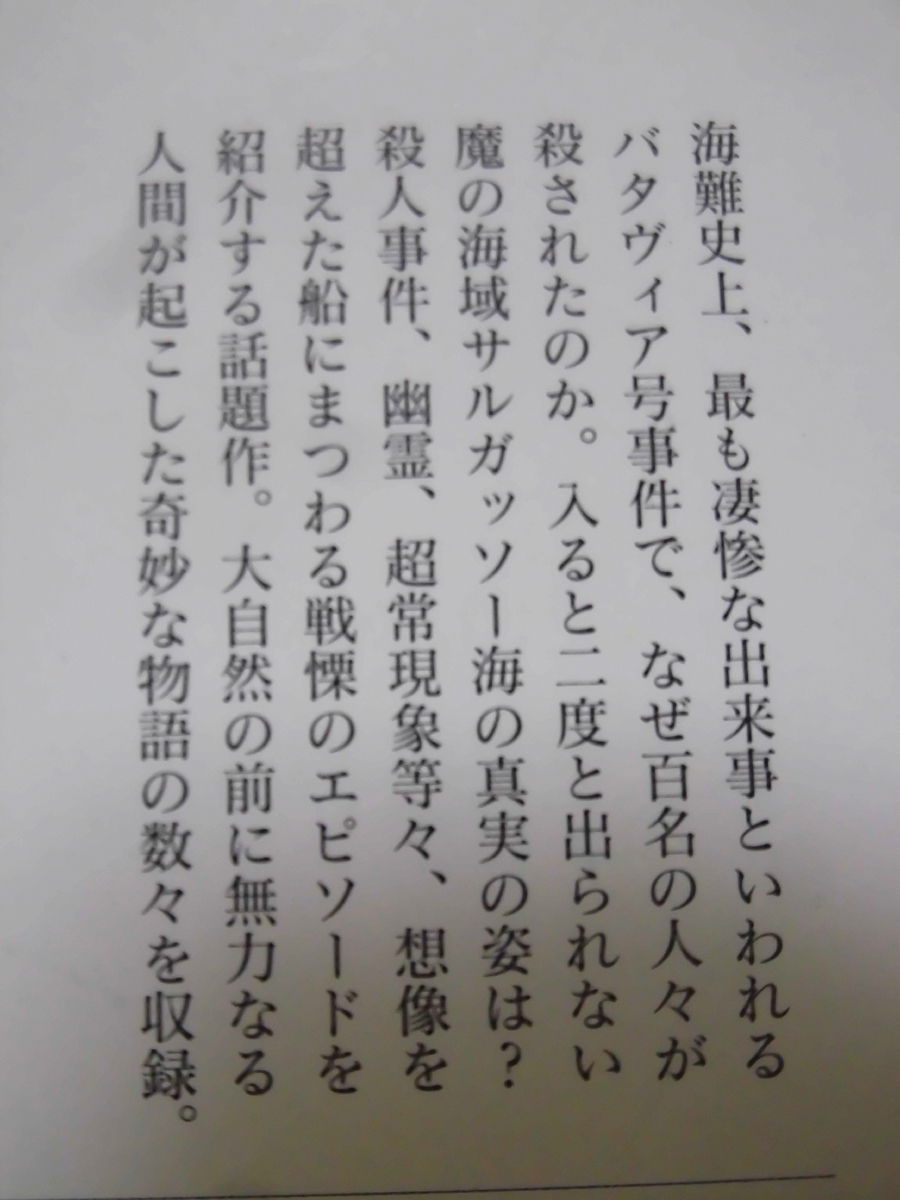 海難史上、最も凄惨な出来事といわれる
バタヴィア号事件で、なぜ百名の人々が
殺されたのか。入ると二度と出られない
魔の海域サルガッソー海の真実の姿は？
殺人事件、幽霊、超常現象等々、想像を
超えた船にまつわる戦慄のエピソードを
紹介する話題作。大自然の前に無力なる
人間が起こした奇妙な物語の数々を収録。